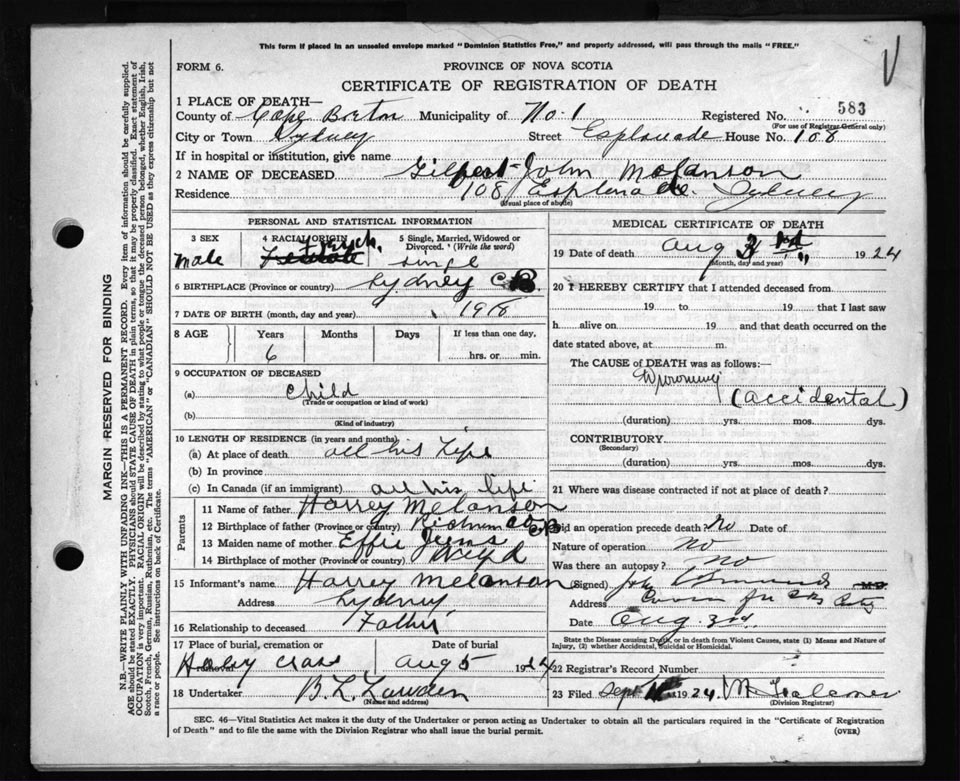 This form if placed in an unsealed envelope marked "Dominion Statistics Free," and property addressed, will pass through the mails "FREE."
FORM 6.
PROVINCE OF NOVA SCOTIA
CERTIFICATE OF REGISTRATION OF DEATH
1 PLACE OF DEATH—
County of Cape Breton Municipality of No. 1 Registered No. 583
(For use of Registrar General only)
City or Town Sydney Street Esplanade House No. 108
If in hospital or institution, give name
2 NAME OF DECEASED Gilbert John Melanson
Residence 108 Esplanade. Sydney
(Usual place of abode)
PERSONAL AND STATISTICAL INFORMATION
3 SEX
male
4 RACIAL ORIGIN
5 Single, Married, Widowed or Divorced. (Write the word)
6 BIRTHPLACE (Province or country) Sydney C.B
7 DATE OF BIRTH (month, day and year) 1918
8 AGE Years Months Days If less than one day,
6 hrs. or min.
9 OCCUPATION OF DECEASED
(a) child
(Trade or occupation or kind of work)
(b)
(Kind of industry)
10 LENGTH OF RESIDENCE (in years and months)
(a) At place of death all his Life
(b) In province
(c) In Canada (if an immigrant) all his life
Parents
11 Name of father Harrey Melanson
12 Birthplace of father (Province or country) C.B
13 Maiden name of mother Effie
14 Birthplace of mother (Province or country) Nfld
15 Informant's name Harrey Melanson
Address Sydney
16 Relationship to deceased Father
17 Place of burial, cremation or removal Date of burial
Holey Cross Aug 5 1924
18 Undertaker B. L.
(Name and address)
MEDICAL CERTIFICATE OF DEATH
19 Date of death Aug 3rd 1924
(Month, day and year)
20 I HEREBY CERTIFY that I attended deceased from
19 to 19 that I last saw
h alive on 19 and that death occurred on the
date stated above, at m.
The CAUSE OF DEATH was as follows:
Drowning
(accidental)
(duration) yrs. mos. dys.
CONTRIBUTORY
(Secondary)
(duration) yrs. mos. dys.
21 Where was disease contracted if not at place of death?
Did an operation precede death? No Date of
Nature of operation no
Was there an autopsy? no
(Signed) M.D.
Address
Date Aug. 3rd.
State the Disease causing Death, or in death from Violent Causes, state (1) Means and Nature of
Injury, (2) whether Accidental, Suicidal or Homicidal.
22 Registrar's Record Number
23 Filed Sept 1924.
(Division Registrar)
SEC. 46—Vital Statistics Act makes it the duty of the Undertaker or person acting as Undertaker to obtain all the particulars required in the "Certificate of Registration
of Death" and to file the same with the Division Registrar who shall issue the burial permit.
(OVER)
MARGIN RESERVED FOR BINDING
N.B.—WRITE PLAINLY WITH UNFADING INK—THIS IS A PERMANENT RECORD. Every item of information should be carefully supplied.
AGE should be stated EXACTLY. PHYSICIANS should STATE CAUSE OF DEATH in plain terms, so that it may be properly classified. Exact statement of
OCCUPATION is very important. RACIAL ORIGIN will be described by stating to what people or tongue the deceased person belonged, whether English, Irish,
Scotch, French, German, Russian, Ruthenian, etc. The terms "AMERICAN" or "CANADIAN" SHOULD NOT BE USED as they express citizenship but not
a race or people. See instructions on back of Certificate.